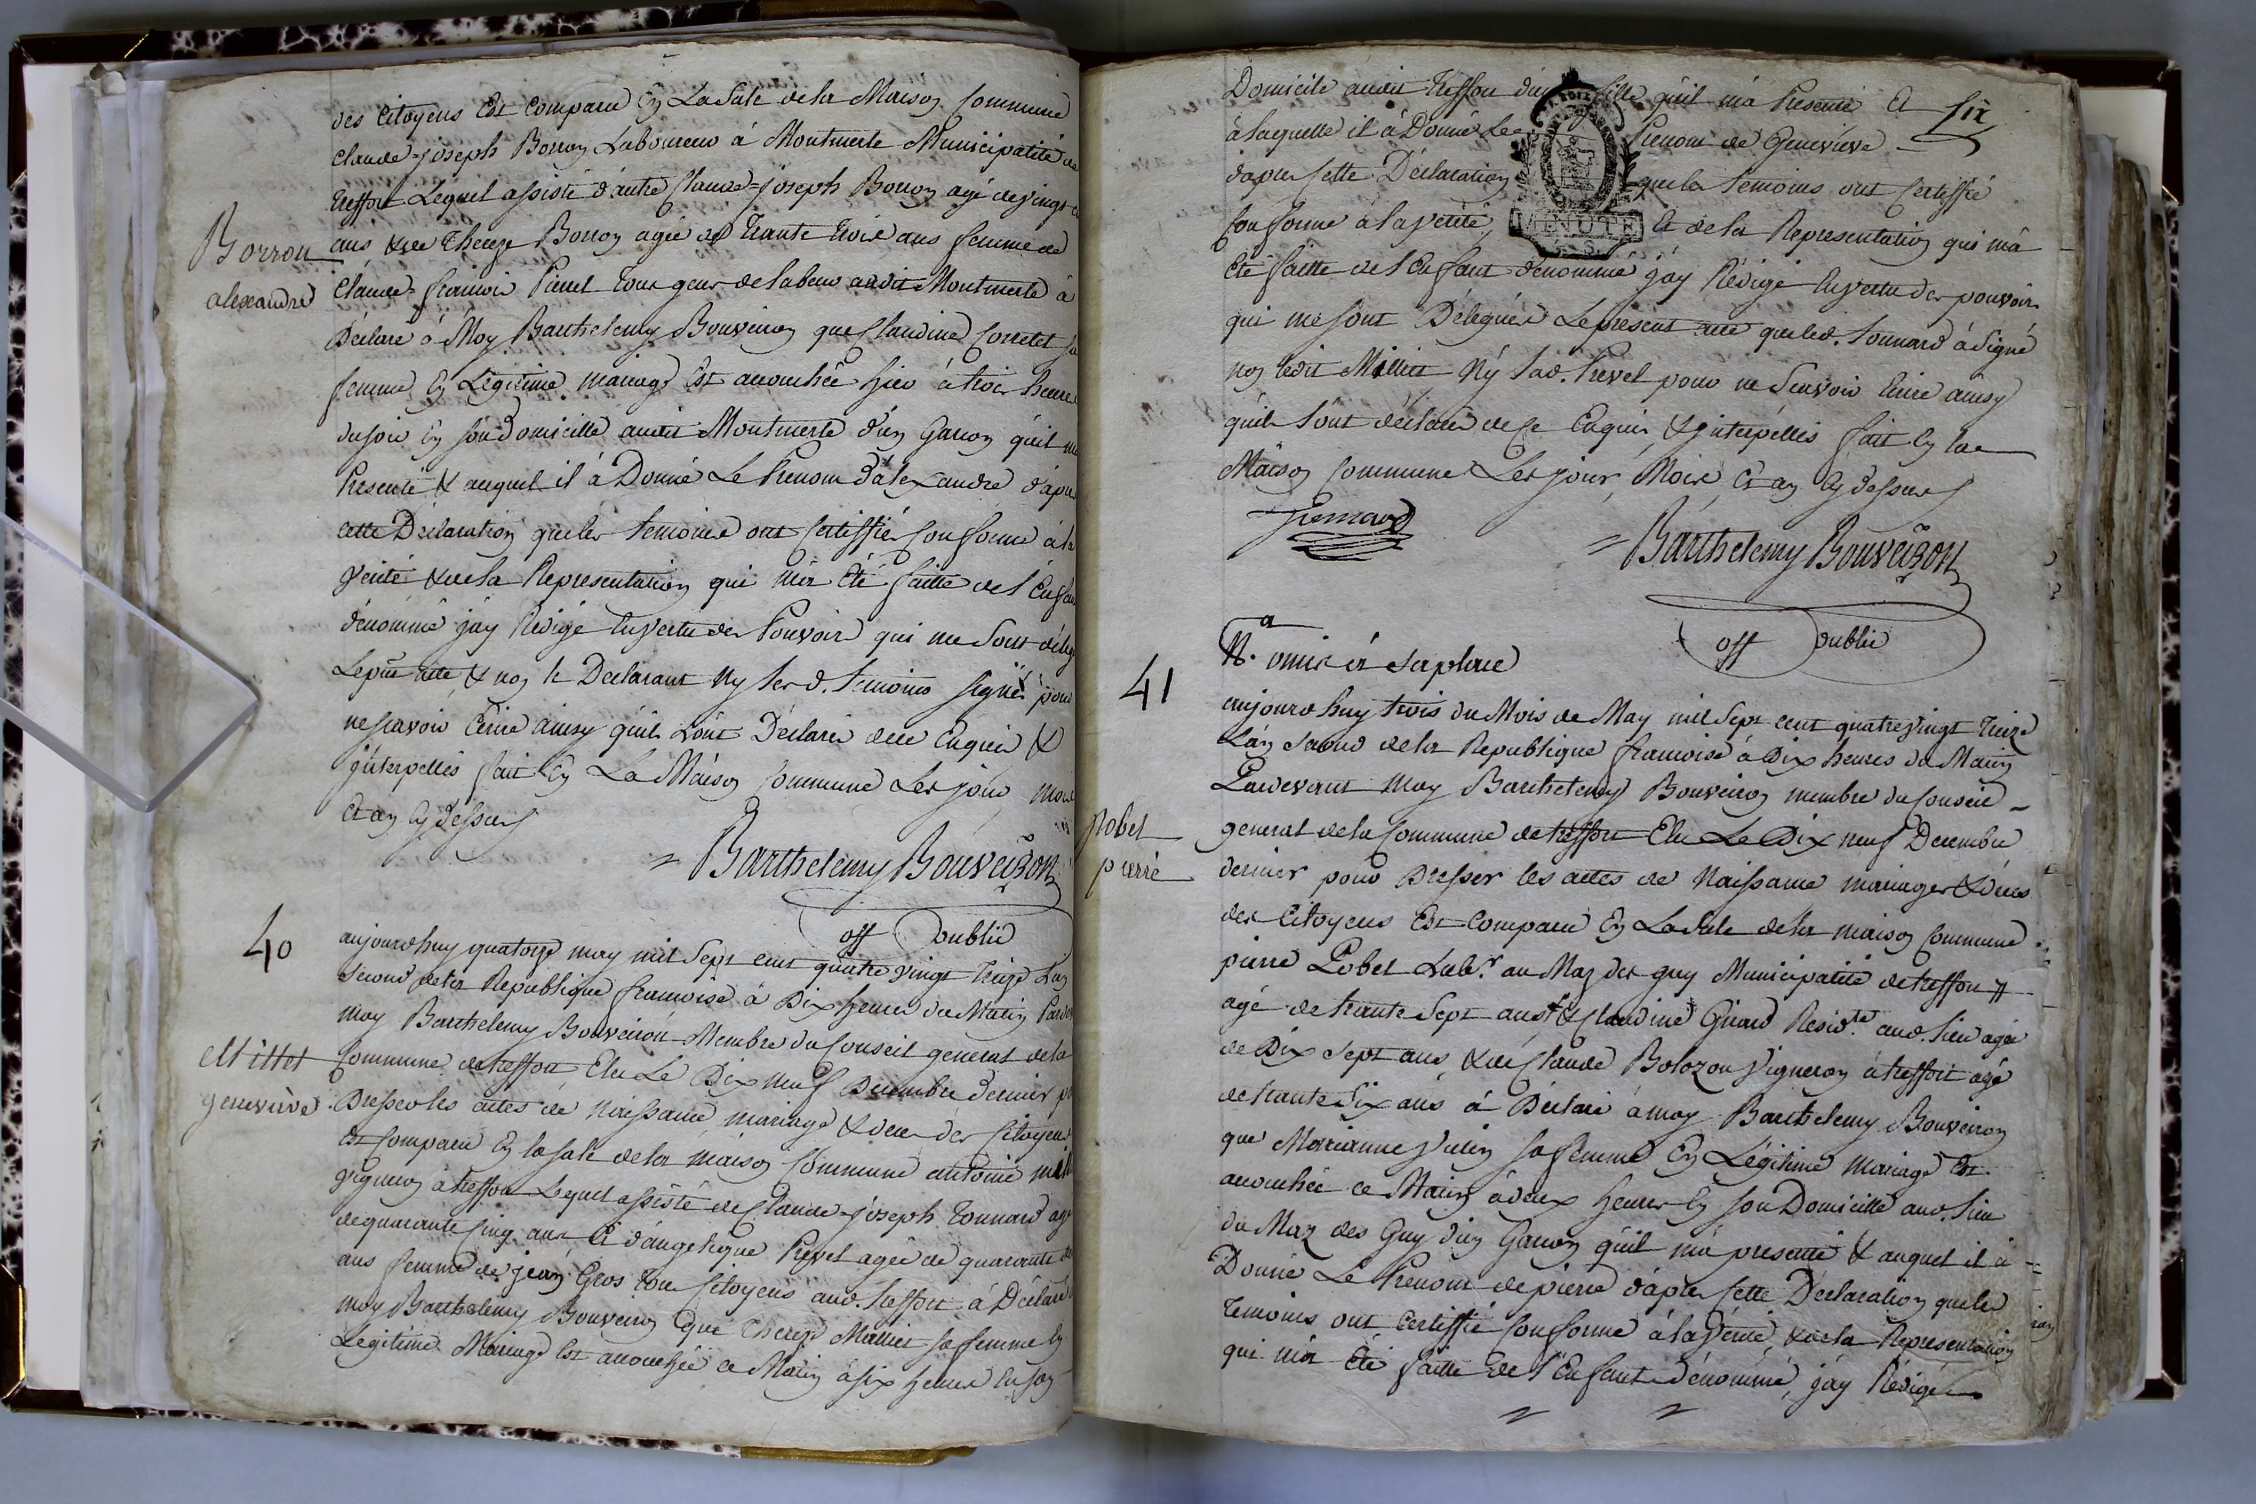 des citoyens Est Comparu En La Sale de la Maison Commune
Claude-joseph Borron Laboureur à Montmerle Municipalité de
treffort Lequel assisté d'autre Claude=joseph Borron agé de vingt
ans & de Thereze Borron agée de Trante trois ans femme de
Claude-francois tous gens de labeur audit Montmerle à
Déclaré à Moy Barthelemy Bouveiron que Claudine Corretet sa
femme En Légitime mariage Est accouchée hier à trois heures
du soir En son Domicille audit Montmerle d'un Garçon qu'il
Présenté & auquel il à Donné Le Prenom d'alexandre d'après
cette Déclaration que les temoins ont Certiffié Conforme à la
verité & de la Représentation qui m'a Eté faitte de l'Enfant
dénommé j'ay Rédigé En vertu des Pouvoirs qui me Sont
Le pnt acte & non le Declarant Ny les d. temoins signé pour
ne sçavoir Ecrire ainsy qu'ils L'ont Déclarés de ce Enquis &
jnterpellés fait En La Maison Commune Les jour mois
Et an Cy dessus
Borron
alexandre
= Barthelemy Bouveiron
off public
40
aujourdhuy quatorze may mil Sept cent quatre vingt treize L'an
Second de la Republique francoise à Dix heures du Matin
moy Barthelemy Bouveiron Membre du Conseil general de la
Commune de treffort Elu Le Dix Neuf Decembre dernier
Dresser les actes de Naissance mariage & deces des Citoyens
Est Comparu En la sale de la maison Commune antoine
Vigneron à treffort Lequel assisté de Claude-joseph Tonnard agé
de quarante cinq ans Et d'angelique Prevel agée de quarante
ans femme de jean Gros tous Citoyens aud. treffort à Déclaré
moy Barthelemy Bouveiron que Thereze Mallier sa femme En
Légitime Mariage Est accouchée ce Matin à six heures En son
Millet
genevieve
Domicile audit treffort d'une fille qu'il m'a Presenté Et
six
à laquelle il à Donné Le Prenom de Genevieve
d'apres Cette Déclaration que les temoins ont Certiffié
Conforme à la verité, Et de la Representation qui m'a
MINUTE
Eté faitte de l'Enfant denommé j'ay Rédigé En vertu des pouvoirs
qui me sont Délégués Le present acte que led. Tonnard à Signé
non ledit Millet Ny lad. Prevel pour ne Sçavoir Ecrire ainsy
qu'ils L'ont déclaré de ce Enquis, & jnterpellés fait En la
Maison Commune Les jour, Mois, Et an Cy dessus
= Barthelemy Bouveiron
off public
Na. omis à sa place
41
aujourdhuy trois du Mois de May mil Sept cent quatre vingt treize
L'an Second de la Republique francoise à Dix heures du Matin
Pardevant moy Barthelemy Bouveiron membre du Conseil
general de la Commune de treffort Elu Le Dix neuf Decembre
dernier pour dresser les actes de Naissance mariages & deces
des Citoyens Est Comparu En La Sale de la maison Commune
pierre Pobel Labr. au Maz des guy Municipalité de treffort
agé de trante Sept ans & Claudine Girard Residte. aud. lieu agée
de Dix sept ans, & de Claude Bolozon Vigneron à treffort agé
de trante Six ans à Déclaré à moy Barthelemy Bouveiron
que Marrianne sa femme En Légitime Mariage Est
accouchée ce Matin à deux heures En son Domicille aud. lieu
du Maz des Guy d'un Garçon qu'il m'a presenté & auquel il à
Donné Le Prenom de pierre d'après Cette Déclaration que les
temoins ont Certiffié Conforme à la verité, & de la Representation
qui m'a Eté faitte de l'Enfant dénommé, j'ay Rédigé
Pobel
pierre